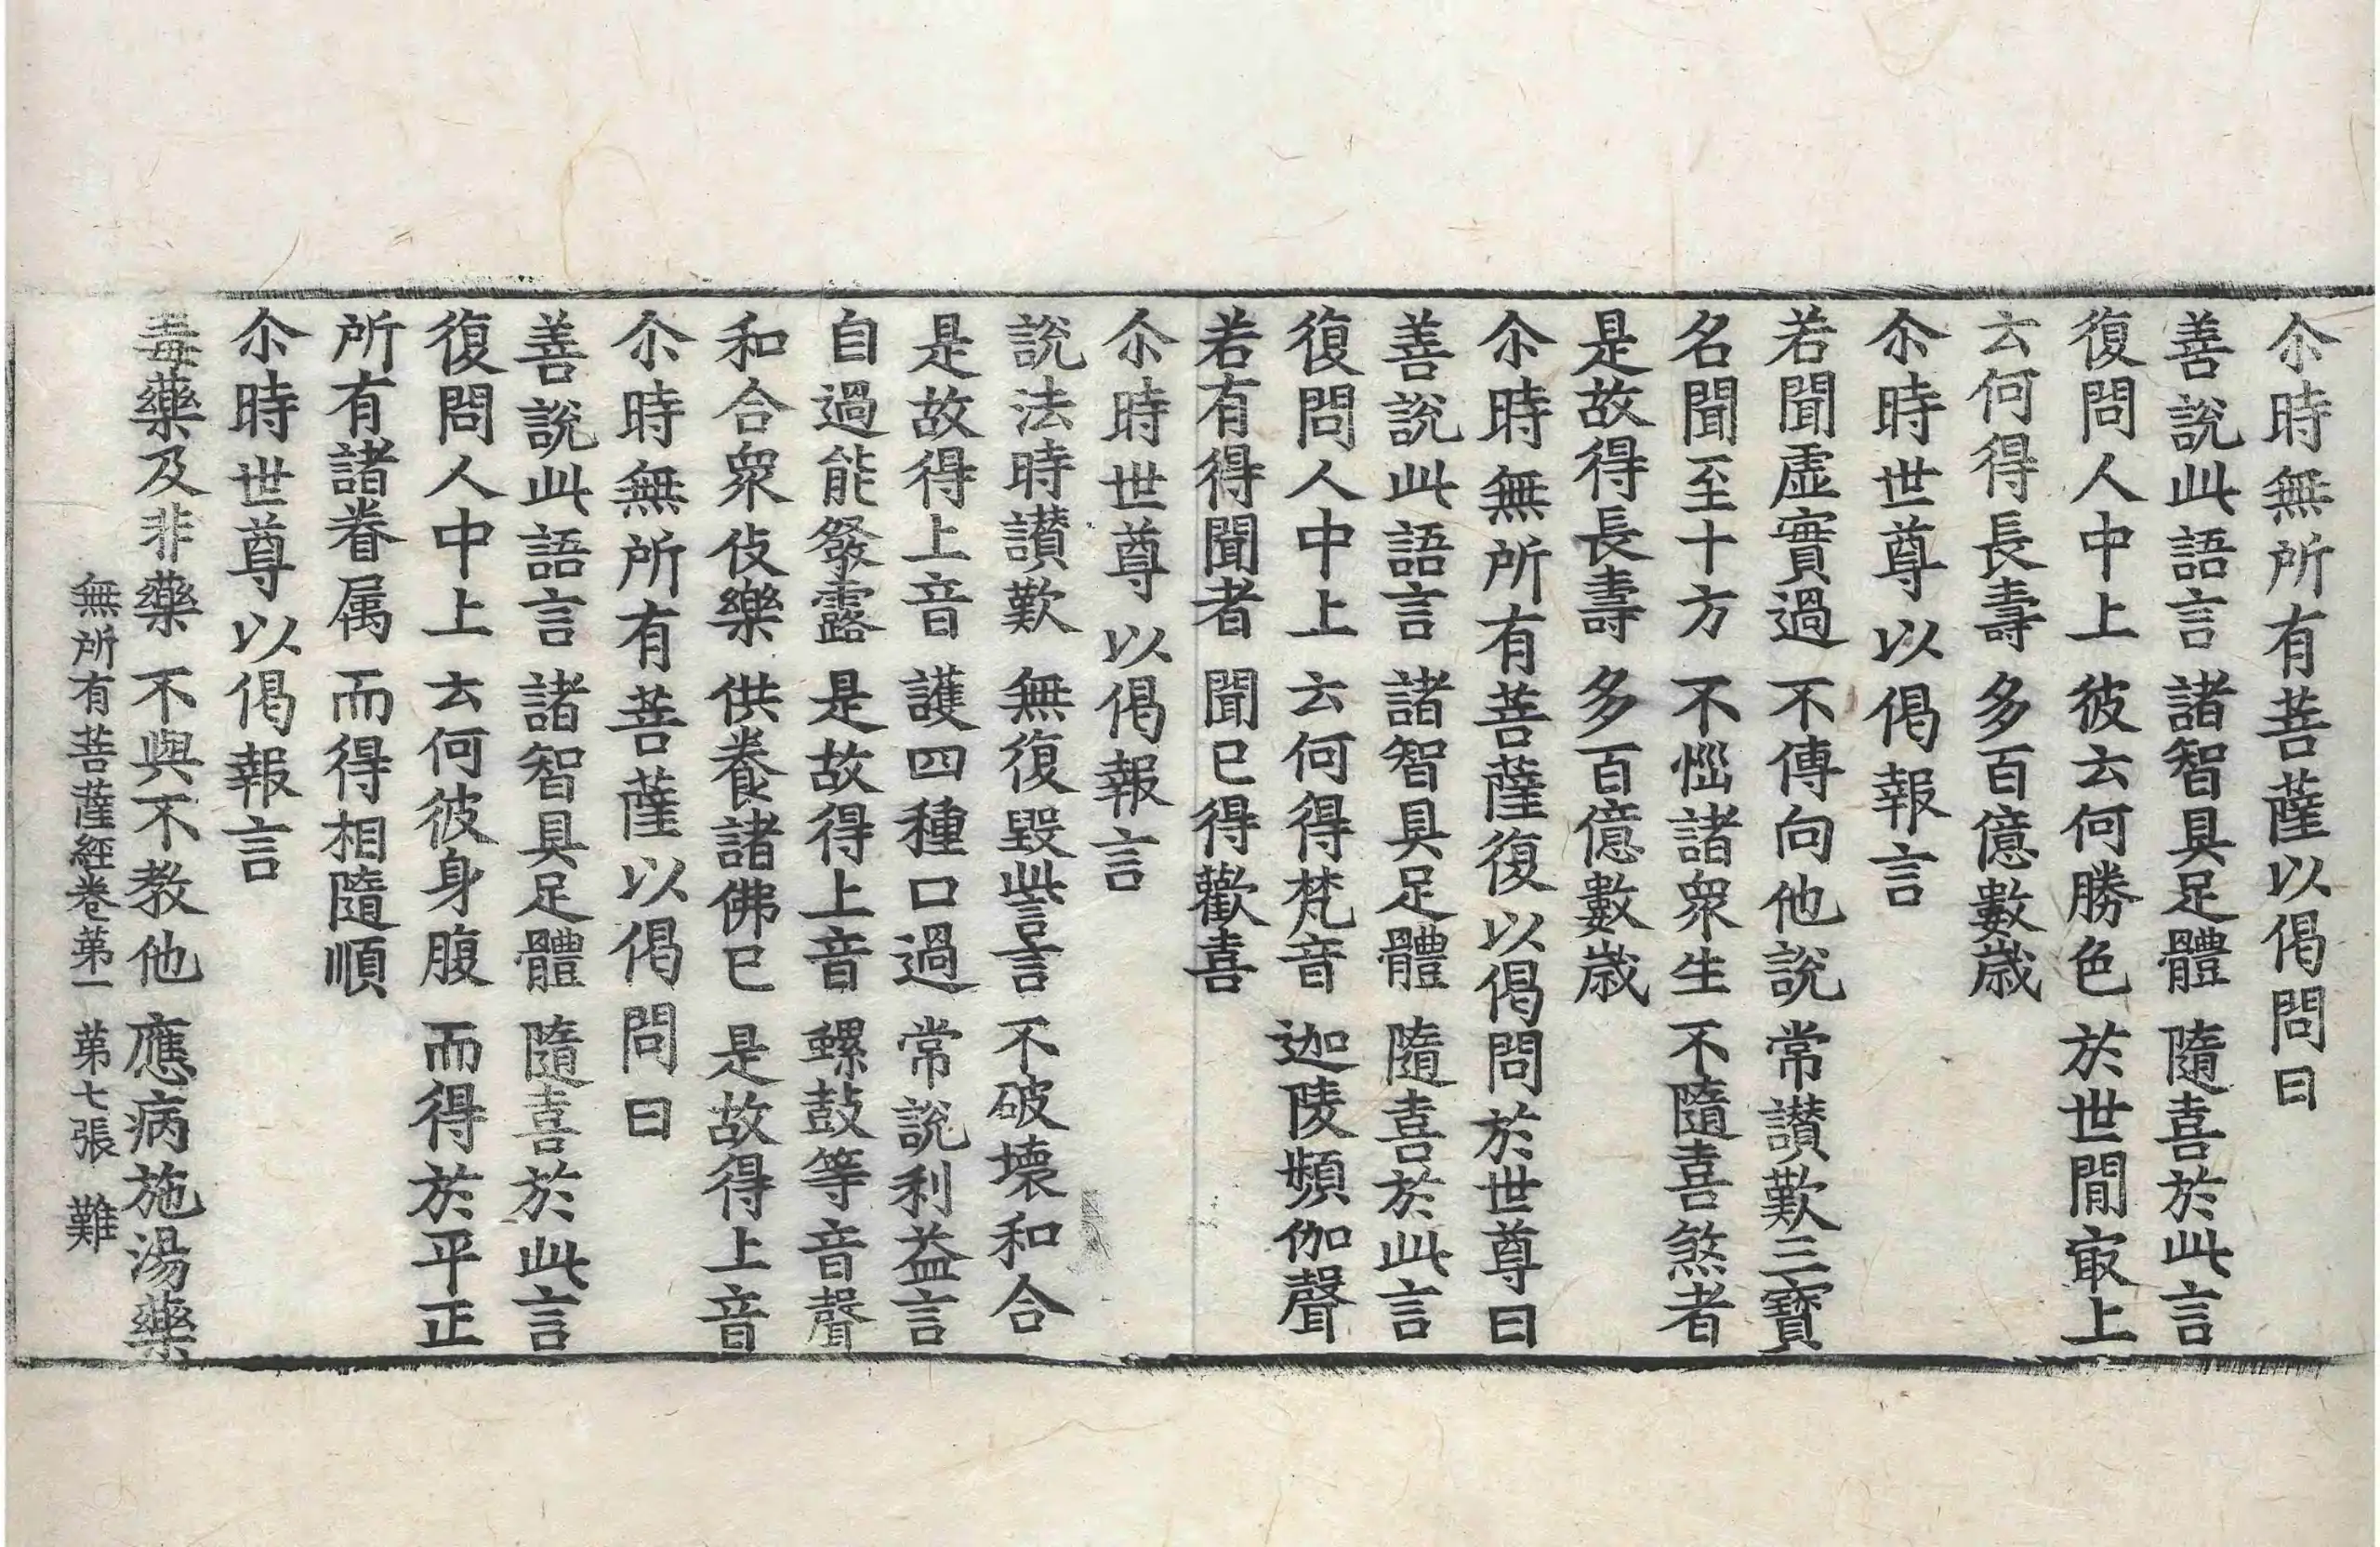 尒時無所有菩薩以偈問曰
善說此語言 諸智具足體 隨喜於此言
復問人中上 彼云何勝色 於世間㝡上
云何得長壽 多百億數歲
尒時世尊以偈報言
若聞虛實過 不傳向他說 常讃歎三寶
名聞至十方 不惱諸衆生 不隨喜煞者
是故得長壽 多百億數歲
尒時無所有菩薩復以偈問於世尊曰
善說此語言 諸智具足體 隨喜於此言
復問人中上 云何得梵音 迦陵頻伽聲
若有得聞者 聞已得歡喜
尒時世尊以偈報言
說法時讃歎 無復毀呰言 不破壞和合
是故得上音 護四種口過 常說利益言
自過能發露 是故得上音 螺鼓等音聲
和合衆伎樂 供養諸佛已 是故得上音
尒時無所有菩薩以偈問曰
善說此語言 諸智具足體 隨喜於此言
復問人中上 云何彼身腹 而得於平正
所有諸眷属 而得相隨順
尒時世尊以偈報言
毒藥及非藥 不與不教他 應病施湯藥
無所有菩薩經卷第一 第七張 難